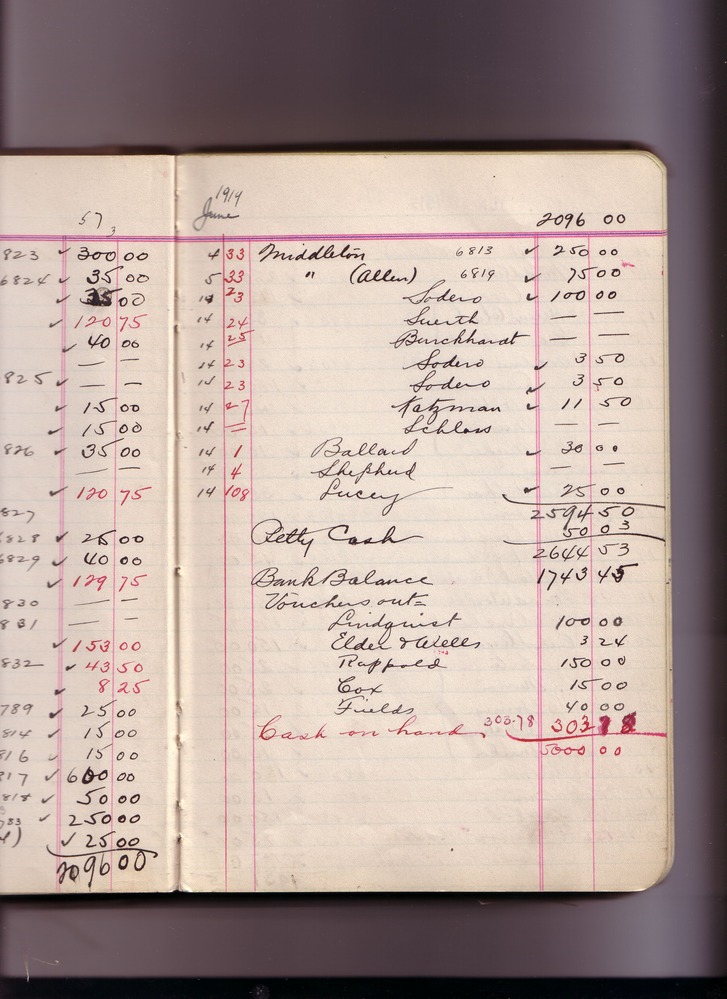 57
3
823 ✓ 300 00
6824 ✓ 35 00
✓ 35 00
✓ 120 75
✓ 40 00
— —
825 ✓ — —
✓ 15 00
✓ 15 00
826 ✓ 35 00
— —
✓ 120 75
827
6828 ✓ 25 00
6829 ✓ 40 00
✓ 129 75
830 — —
831 — —
✓ 153 00
832 ✓ 43 50
✓ 8 25
789 ✓ 25 00
814 ✓ 15 00
816 ✓ 15 00
817 ✓ 600 00
818 ✓ 50 00
✓ 250 00
✓ 25 00
2096 00
1919
June 2096 00
4 33 Middleton 6813 ✓ 250 00
5 33 " (Allen) 6819 ✓ 75 00
14 23 Sodero ✓ 100 00
14 24 Suerth — —
14 25 Burckhardt — —
14 23 Sodero ✓ 3 50
14 23 Sodero ✓ 3 50
14 27 Katzman ✓ 11 50
14 — Schloss — —
14 1 Ballard ✓ 30 00
14 4 Shepherd — —
14 108 Lucey ✓ 25 00
2594 50
Petty Cash 50 03
2644 53
Bank Balance 1743 45
Vouchers out=
Lindquist 100 00
Elder & Wells 3 24
Rappold 150 00
Cox 15 00
Fields 40 00
Cash on hand. 303.78 303 78
5000 00